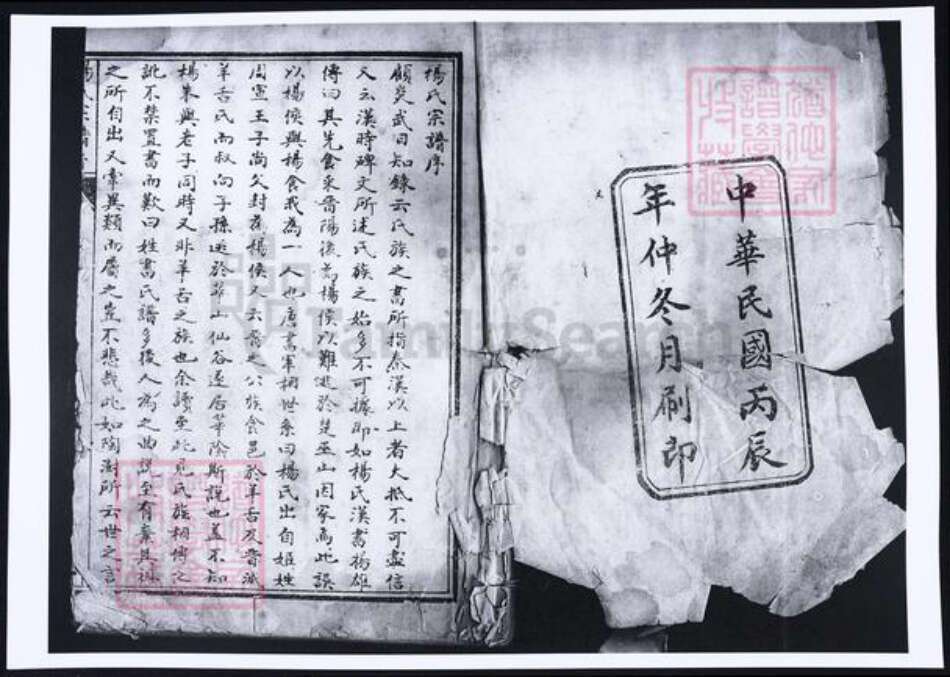 中華民國丙辰
年仲冬月刷印
楊氏宗譜序
顧炎武日知錄云氏族之書所指秦漢以上者大抵不可盡信
又云漢時碑文所述氏族之始多不可據即如楊氏漢書揚雄
傳曰其先食采晉陽後為楊侯以難逃於楚巫山因家焉此誤
以楊侯與楊食我為一人也唐書宰相世系曰楊氏出自姬姓
周宣王子尚父封為楊侯又云晉之公族食邑於羊舌及晉滅
羊舌氏而叔向子孫逃於華山仙谷遂居華陰斯說也蓋不知
楊朱與老子同時又非羊舌之族也余讀至此見氏族相傳之
訛不禁置書而歎曰姓書氏譜多後人為之曲說至有棄其
之所自出又牽異類而屬之豈不悲哉此如陶澍所云世之言
FamilySearch